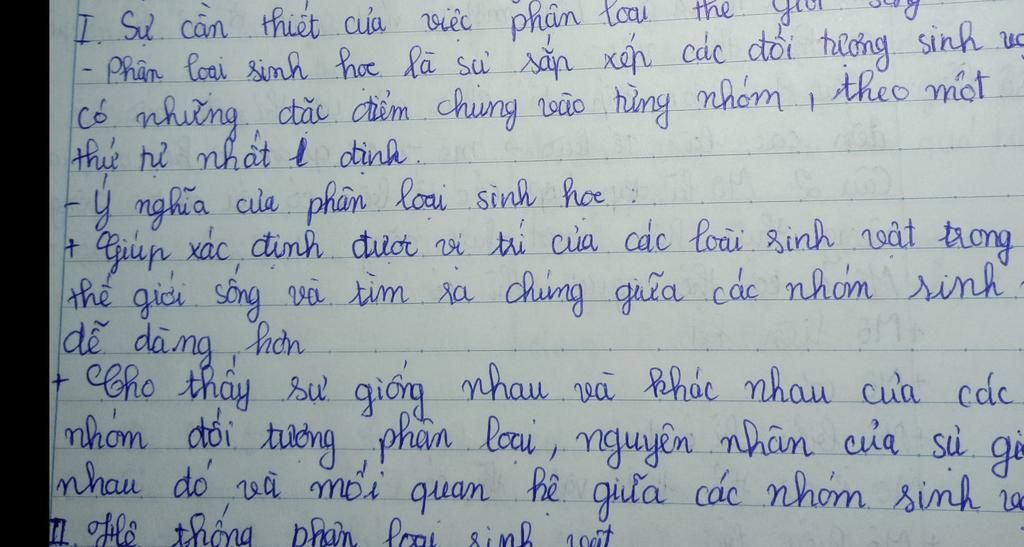 I. Sự cần thiết của việc phân loại thế giới sống
- Phân loại sinh học là sự sắp xếp các đối tượng sinh
có những đặc điểm chung vào từng nhóm, theo một
thứ tự nhất định.
- Ý nghĩa của phân loại sinh học:
+ Giúp xác định được vị trí của các loài sinh vật trong
thế giới sống và tìm ra chúng giữa các nhóm sinh
dễ dàng hơn
+ Cho thấy sự giống nhau và khác nhau của các
nhóm đối tượng phân loại, nguyên nhân của sự
nhau đó và mối quan hệ giữa các nhóm sinh
II. Hệ thống phân loại sinh vật